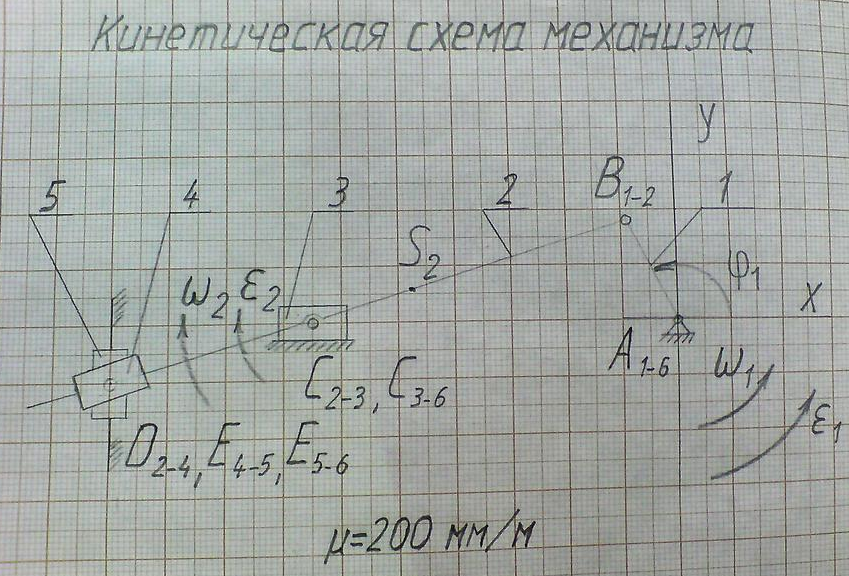 Кинетическая схема механизма
y
5 4 3 2 B₁₋₂ 1
S₂ φ₁
ω₂ ε₂ x
A₁₋₆ ω₁
C₂₋₃, C₃₋₆ ε₁
D₂₋₄, E₄₋₅, E₅₋₆
μ=200 мм/м